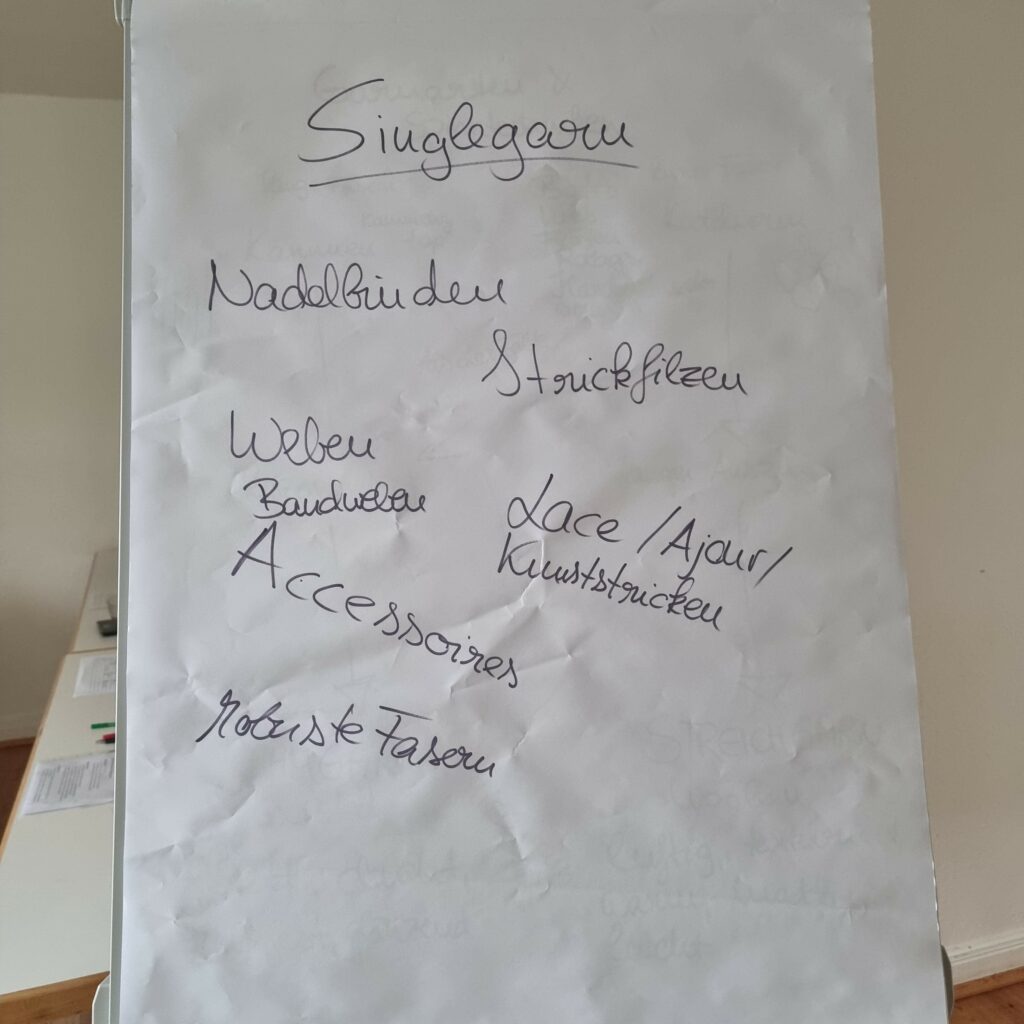 Singlegarn
Nadelbinden
Strickfilzen
Weben
Bandweben
Lace / Ajour /
Kunststricken
Accessoires
Robuste Fasern